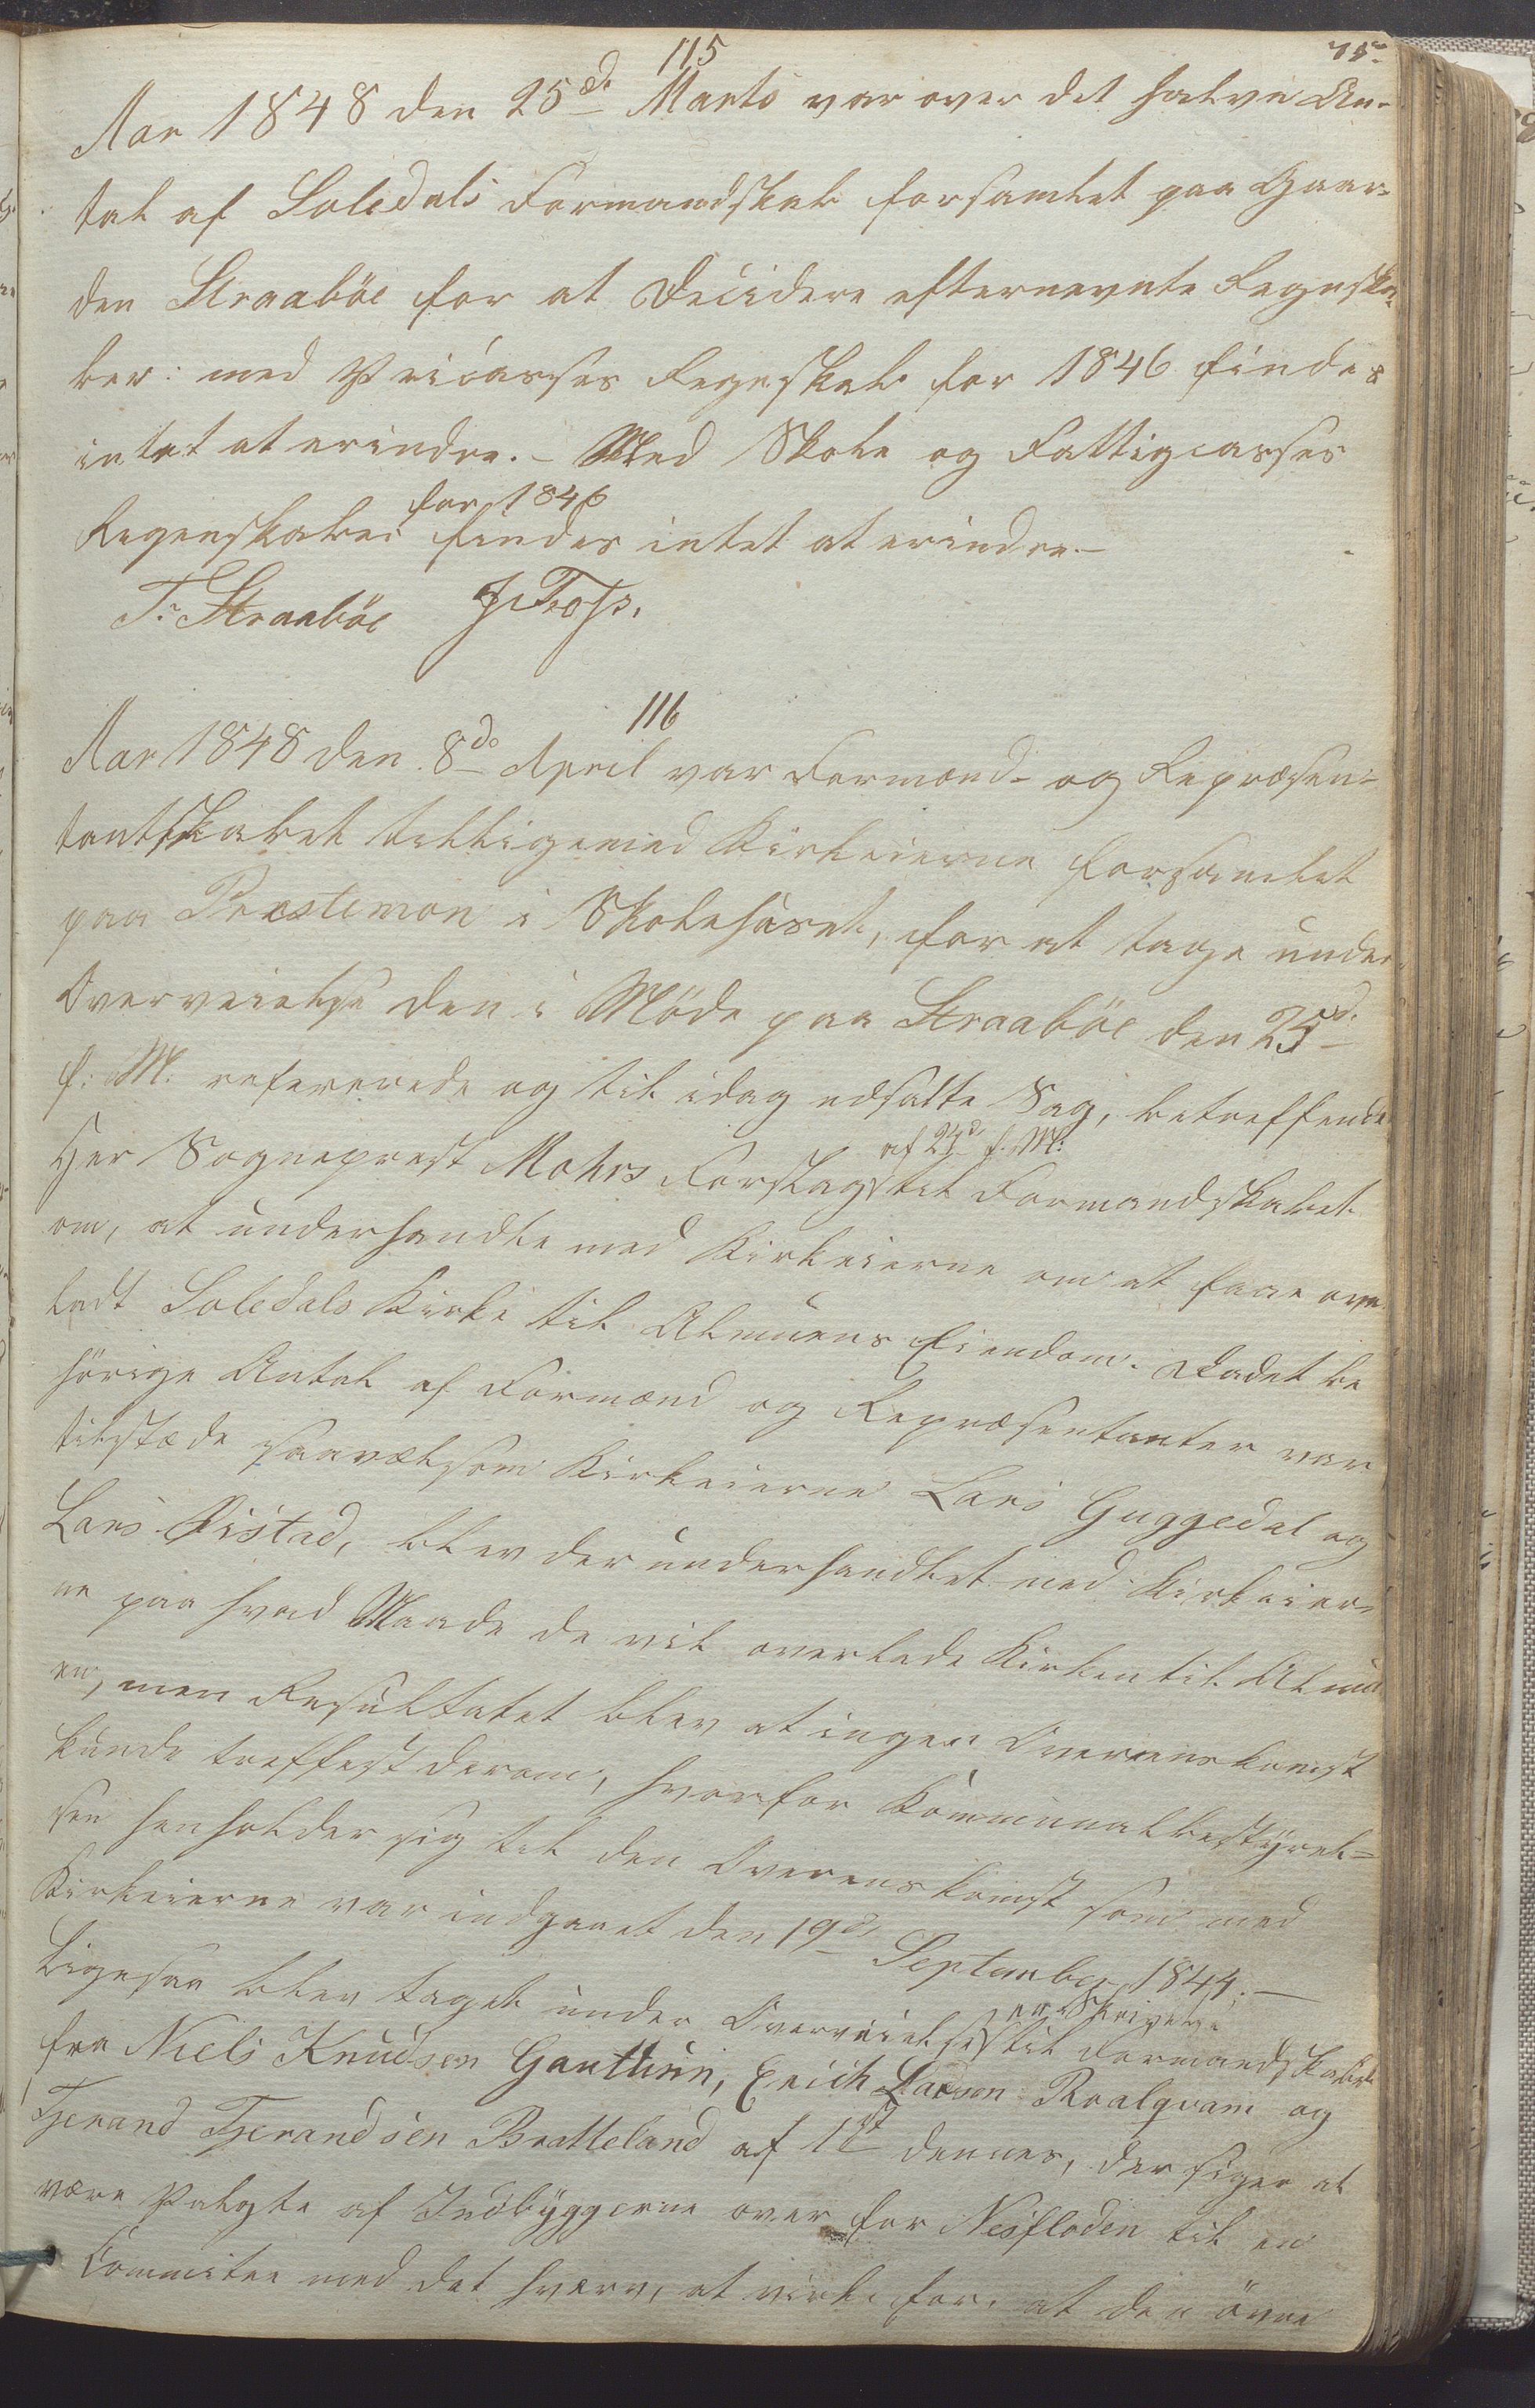 115
75.
Aar 1848 den 25de Marts var over det halve An-
tal af Soledals Formandskab forsamlet paa Gaar-
den Straabøe for at decidere efternevnte Regnska-
ber: med Pricasses Regnskab for 1846 findes
intet at erindre. – Med Skole og Fattigcasses
for 1846
Regenskaber findes intet at erindre. –
T. Straabøe
116
Aar 1848 den 8de April var Formænd- og Repræsen-
tantskabet tilligemed Kirkeierne forsamlet
paa Præstemon i Skolehuset, for at tage under
Overveielse den i Møde paa Straabøe den 25d.
f. M. refererede og til idag udsatte Sag, betreffende
af 24d f. M.
Her Sogneprest Mohrs Forslag til Formandskabet
om, at underhandle med Kirkeierne om at faae over
ladt Soledals Kirke til Almuens Eiendom. Da det be
hørige Antal af Formænd og Repræsentanter var
tilstæde saavelsom Kirkeierne Lars Guggedal og
Lars Fistad, blev der underhandlet med Kirkeier-
ne paa hvad Maade de vil overlade Kirken til Almu
en, men Resultatet blev at ingen Overenskomst
kunde treffest derom, hvorfor Kommunalbestyrel-
sen henholder sig til den Overenskomst som med
Kirkeierne var indgaaet den 19d September 1844. –
en Skrivelse
Ligesaa blev taget under Overveielse til Formandskabet
fra Niels Knudsen Gauthun, Erich Larsen Roalqvam og
Tjerand Tjerandsen Bratteland af 1st dennes, der siger at
være Valgte af Indbyggerne over for Nesfloden til en
Committee med det hverv, at virke for at den øvre